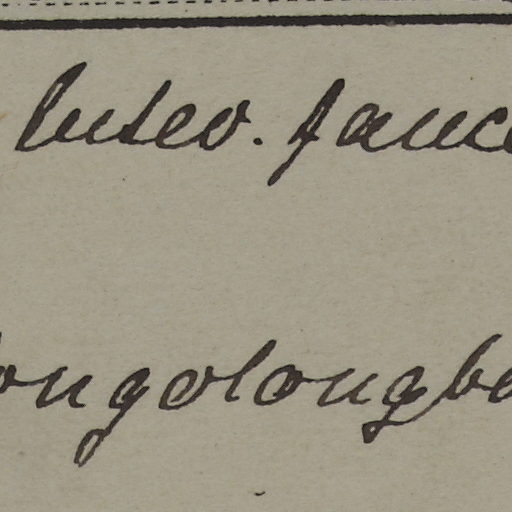 luteo. fauce
ongolongbo